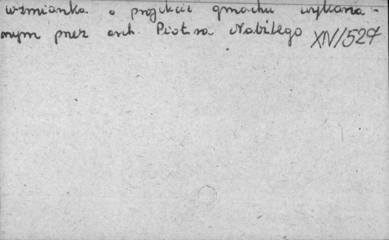 wzmianka o projekcie gmachu wykona-
nym przez arch. Piotra Nabiłego XIV/527